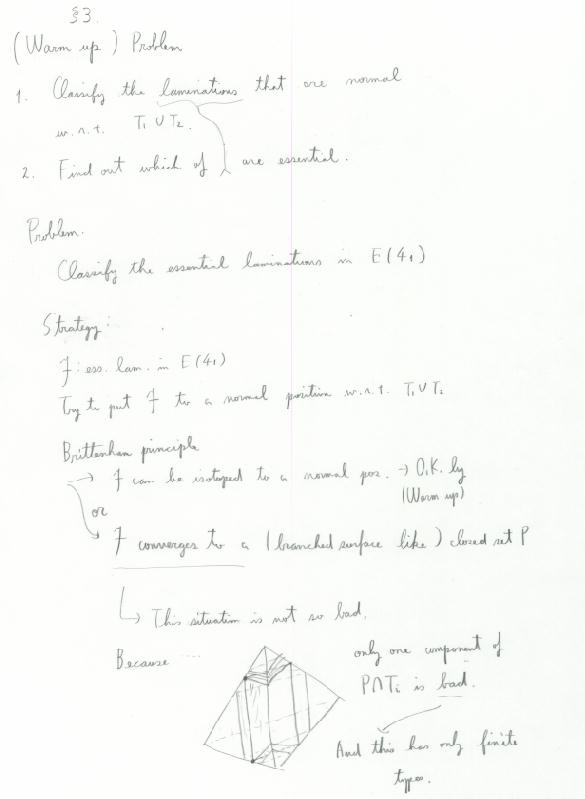 §3.
(Warm up) Problem
1. Classify the laminations that are normal
w.r.t. T₁ ∪ T₂.
2. Find out which of are essential.
Problem.
Classify the essential laminations in E(4₁)
Strategy:
F: ess. lam. in E(4₁)
Try to put F to a normal position w.r.t. T₁ ∪ T₂
Brittenham principle
→ F can be isotoped to a normal pos. → O.K. by
(Warm up)
or
F converges to a (branched surface like) closed set P
↳ This situation is not so bad.
Because ....
only one component of
P∩Tᵢ is bad.
And this has only finite
types.